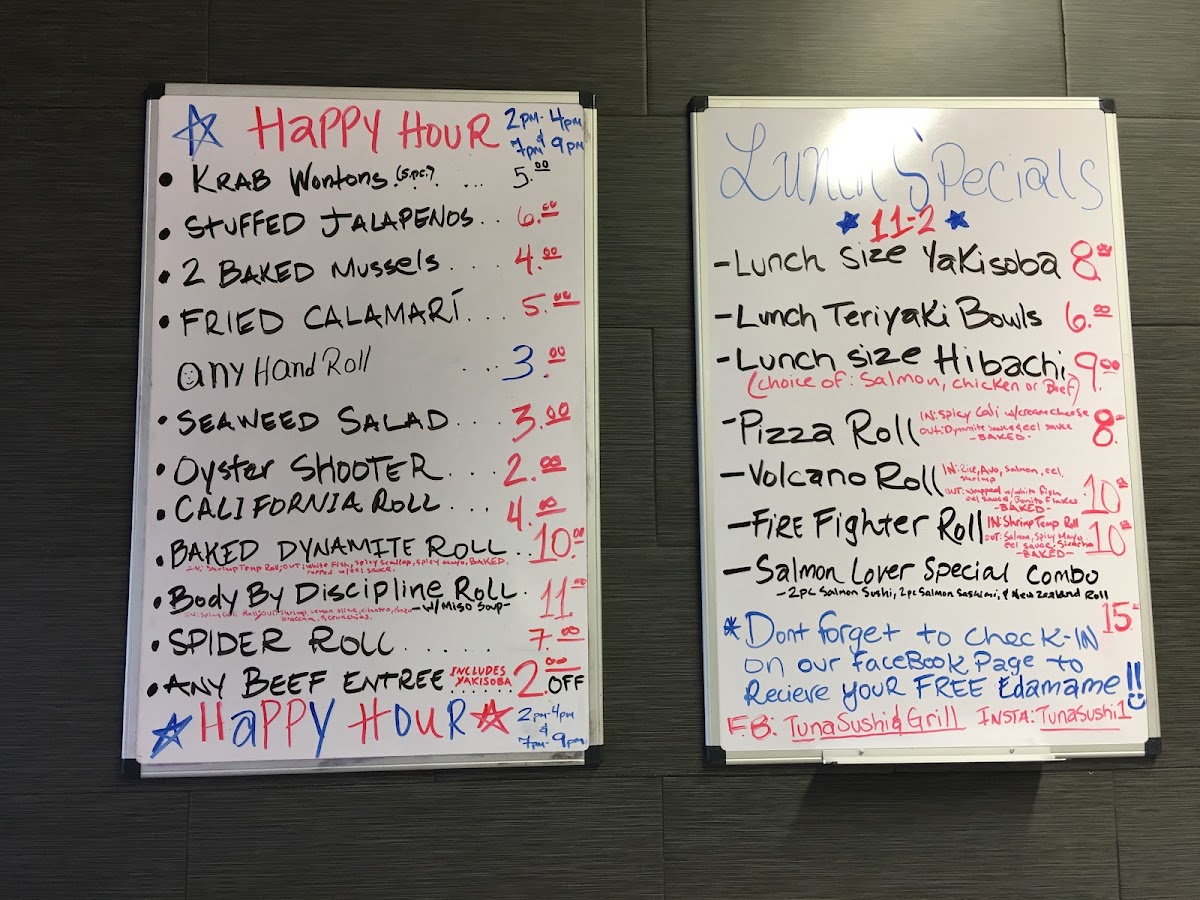 Happy Hour 2pm-4pm
& 7pm-9pm
• Krab Wontons (5pc.) ... 5.00
• Stuffed Jalapenos.. 6.00
• 2 Baked Mussels.... 4.00
• Fried Calamarí... 5.00
any Hand Roll ... 3.00
• Seaweed Salad... 3.00
• Oyster Shooter... 2.00
• California Roll... 4.00
• Baked Dynamite Roll.. 10.00
IN: Shrimp Temp Roll, OUT: White Fish, Spicy Scallop, Spicy Mayo, BAKED,
Topped w/ eel sauce.
• Body By Discipline Roll. 11.00
- w/ Miso Soup -
• Spider Roll...... 7.00
• Any Beef Entree INCLUDES YAKISOBA 2.00 OFF
Happy Hour 2pm-4pm
& 7pm-9pm
Lunch Specials
11-2
- Lunch Size Yakisoba 8.00
- Lunch Teriyaki Bowls 6.00
- Lunch size Hibachi 9.00
(choice of: Salmon, chicken or Beef)
- Pizza Roll 8.00
IN: Spicy Cali w/cream cheese
OUT: Dynamite sauce & eel sauce
- BAKED -
- Volcano Roll 10.00
IN: Rice, Avo, Salmon, eel,
shrimp
OUT: wrapped w/ white fish
eel sauce, Bonito Flakes
- BAKED -
- Fire Fighter Roll 10.00
IN: Shrimp Temp Roll
OUT: Salmon, Spicy Mayo
eel sauce, Siracha
- BAKED -
- Salmon Lover Special Combo
- 2pc Salmon Sushi, 2pc Salmon Sashimi, & New Zealand Roll
15.
* Dont forget to check-IN
on our FaceBook Page to
Recieve your FREE Edamame!!
FB: TunaSushi&Grill INSTA: TunaSushi1